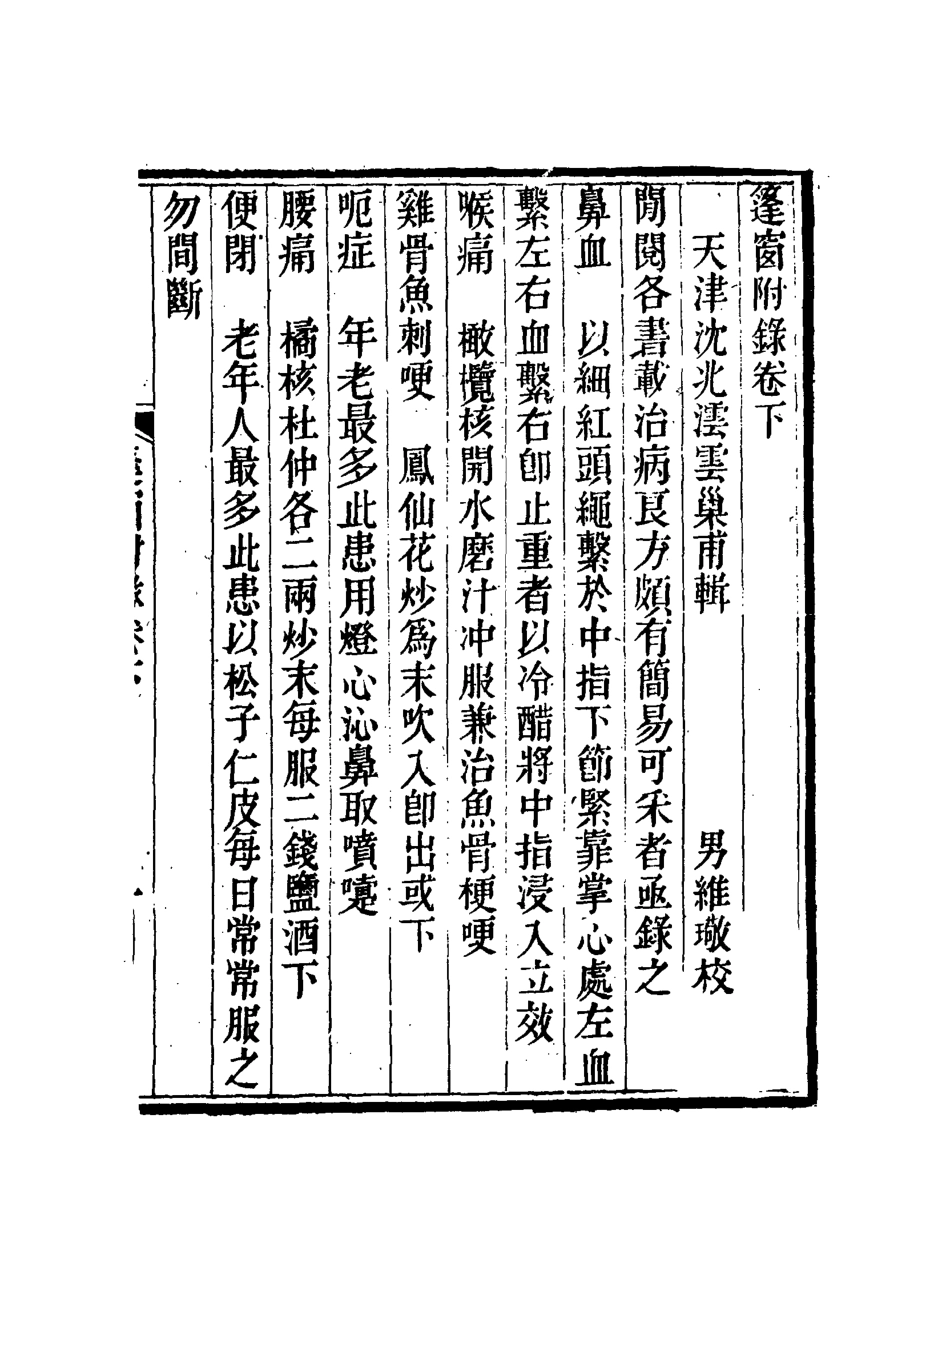 篷窗附錄卷下
天津沈兆澐雲巢甫輯　男維璥校
閒閱各書載治病良方頗有簡易可采者亟錄之
鼻血　以細紅頭繩繫於中指下節緊靠掌心處左血
繫左右血繫右卽止重者以冷醋將中指浸入立效
喉痛　橄欖核開水磨汁冲服兼治魚骨梗哽
雞骨魚刺哽　鳳仙花炒爲末吹入卽出或下
呃症　年老最多此患用燈心沁鼻取噴嚏
腰痛　橘核杜仲各二兩炒末每服二錢鹽酒下
便閉　老年人最多此患以松子仁皮每日常常服之
勿間斷